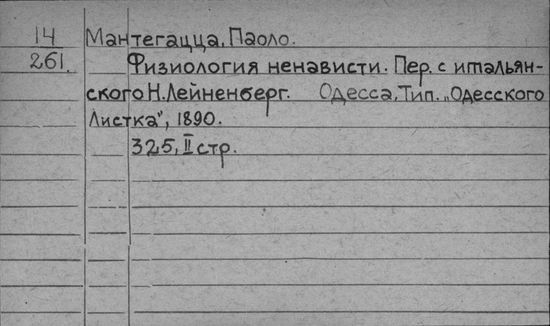 14 Мантегацца, Паоло.
261. Физиология ненависти. Пер. с итальян-
ского Н. Лейненберг. Одесса, Тип. „Одесского
Листка", 1890.
325, II стр.